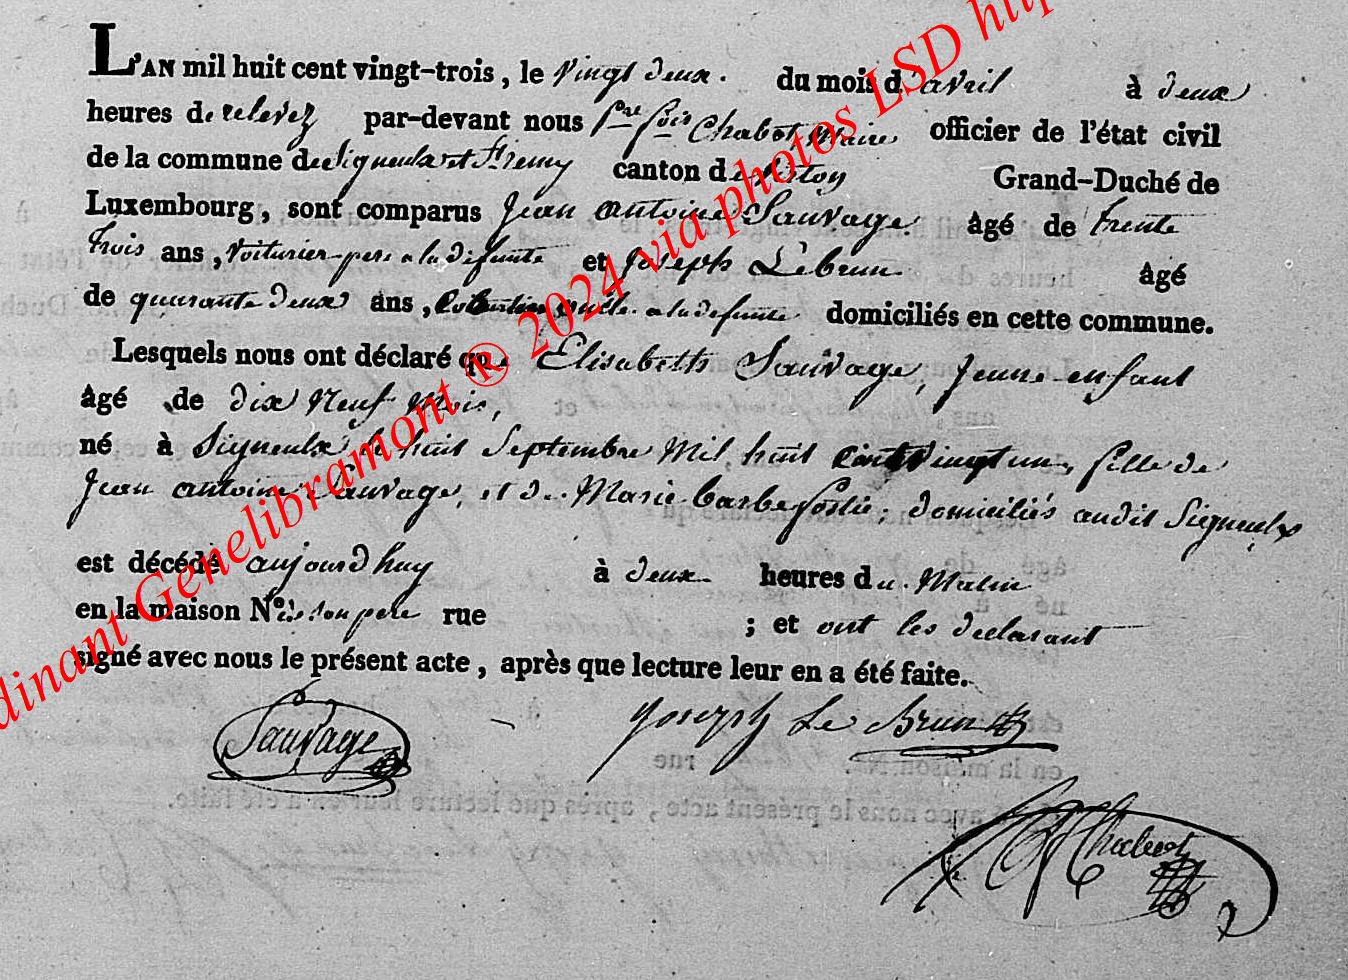 L'AN mil huit cent vingt-trois, le vingt deux. du mois d'avril à deux
heures de relevez par-devant nous Pre fois Chabot, Maire officier de l'état civil
de la commune de Signeulx et St remy canton de Grand-Duché de
Luxembourg, sont comparus Jean antoine Sauvage âgé de trente
trois ans, voiturier pere a la defunte et Joseph Lebrun âgé
de quarante deux ans, a la defunte domiciliés en cette commune.
Lesquels nous ont déclaré que Elisabeth Sauvage, Jeune enfant
âgé de dix Neuf Mois,
né à Signeulx le huit Septembre Mil huit cent vingt un, fille de
Jean antoine Sauvage, et de Marie barbe domiciliés audit Signeulx
est décédé aujourdhuy à deux heures du Matin
en la maison No. de son pere rue ; et ont les declarant
signé avec nous le présent acte, après que lecture leur en a été faite.
Sauvage Joseph Le Brun
Chabot
dinant Genelibramont ® 2024 via photos LSD http